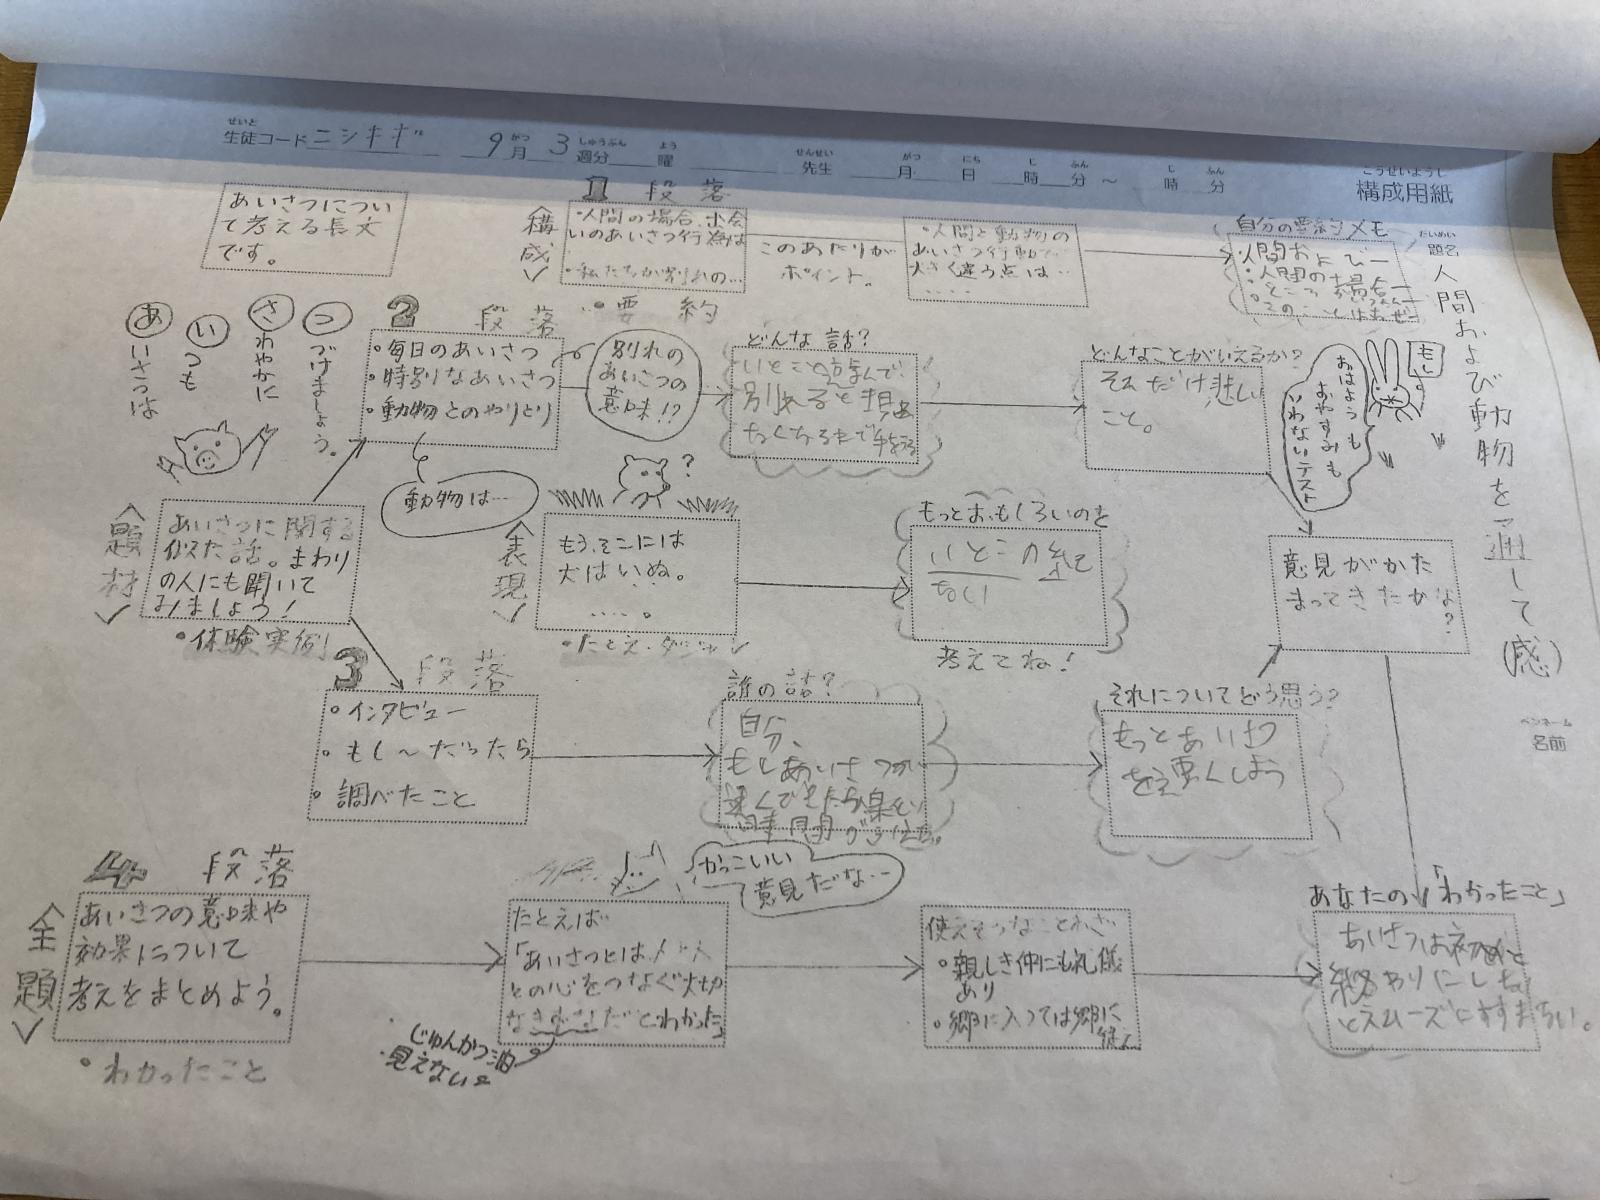 生徒コード ニシキギ 9月 3週分 曜 先生 月 日 時 分 ~ 時 分
せいと がつ しゅうぶん よう せんせい がつ にち じ ふん じ ふん
こうせいようし
構成用紙
だいめい
題名
人間および動物を通して(感)
ペンネーム
名前
あいさつについ
て考える長文
です。
1 段落
構成
・人間の場合、出会
いのあいさつ行為は
・私たちが別れの…
このあたりが
ポイント。
・人間と動物の
あいさつ行動で
大きく違う点は…
……
自分の要約メモ
人間および
・人間の場合
・要約
あ いさつは
い つも
さ わやかに
つ づけましょう。
2 段落
・毎日のあいさつ
・特別なあいさつ
・動物とのやりとり
別れの
あいさつの
意味!?
動物は…
どんな話?
どんなことがいえるか?
それだけ悲しい
こと。
もしも
おはようも
おやすみも
いわないテスト
題材
あいさつに関する
似た話。まわり
の人にも聞いて
みましょう!
・体験実例
表現
もう、そこには
犬はいぬ。
……。
・たとえ・ダジャレ
?
もっとおもしろいのを
考えてね!
意見がかた
まってきたかな?
3 段落
・インタビュー
・もし〜だったら
・調べたこと
誰の話?
自分、
もしあいさつが
それについてどう思う?
もっとあいさつ
4 段落
全題
あいさつの意味や
効果について
考えをまとめよう。
・わかったこと
かっこいい
意見だな…
たとえば
「あいさつとは、人と人
との心をつなぐ大切
なきずなだとわかった」
じゅんかつ油
見えない
使えそうなことわざ
・親しき仲にも礼儀
あり
・郷に入っては郷に
従え
あなたの「わかったこと」
あいさつは